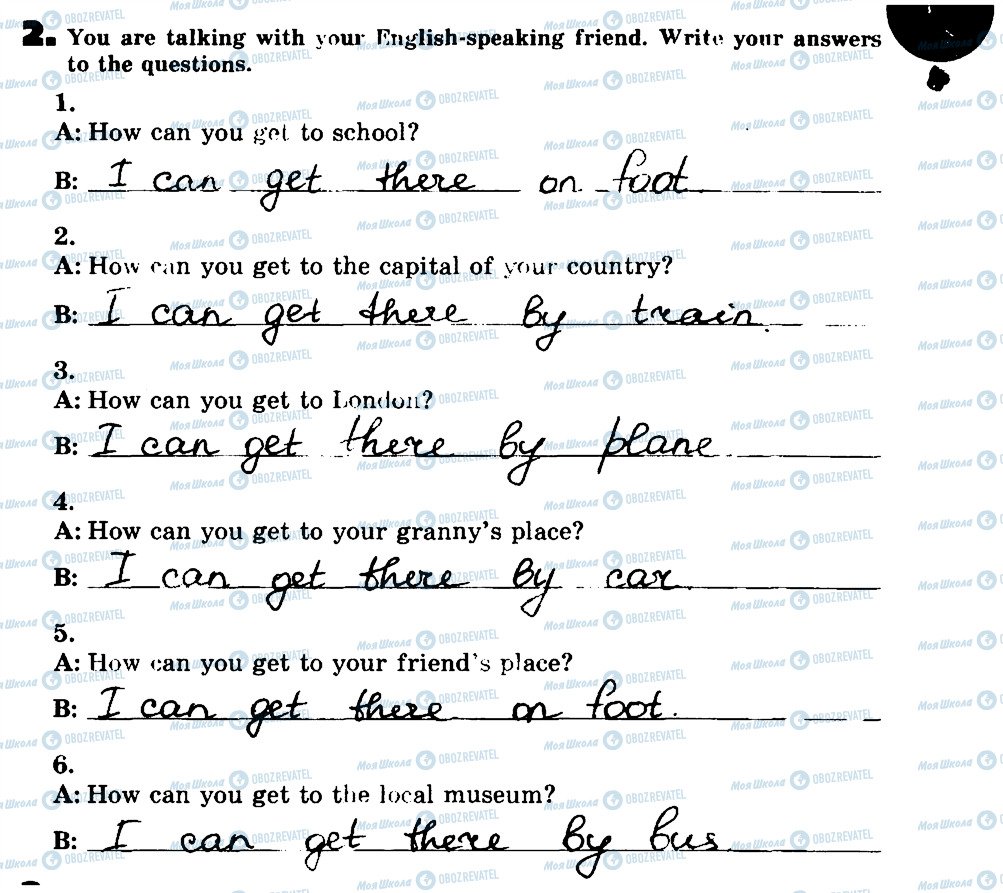 2. You are talking with your English-speaking friend. Write your answers
to the questions.
1.
A: How can you get to school?
B: I can get there on foot.
2.
A: How can you get to the capital of your country?
B: I can get there by train.
3.
A: How can you get to London?
B: I can get there by plane.
4.
A: How can you get to your granny's place?
B: I can get there by car.
5.
A: How can you get to your friend's place?
B: I can get there on foot.
6.
A: How can you get to the local museum?
B: I can get there by bus.
МояШкола OBOZREVATEL